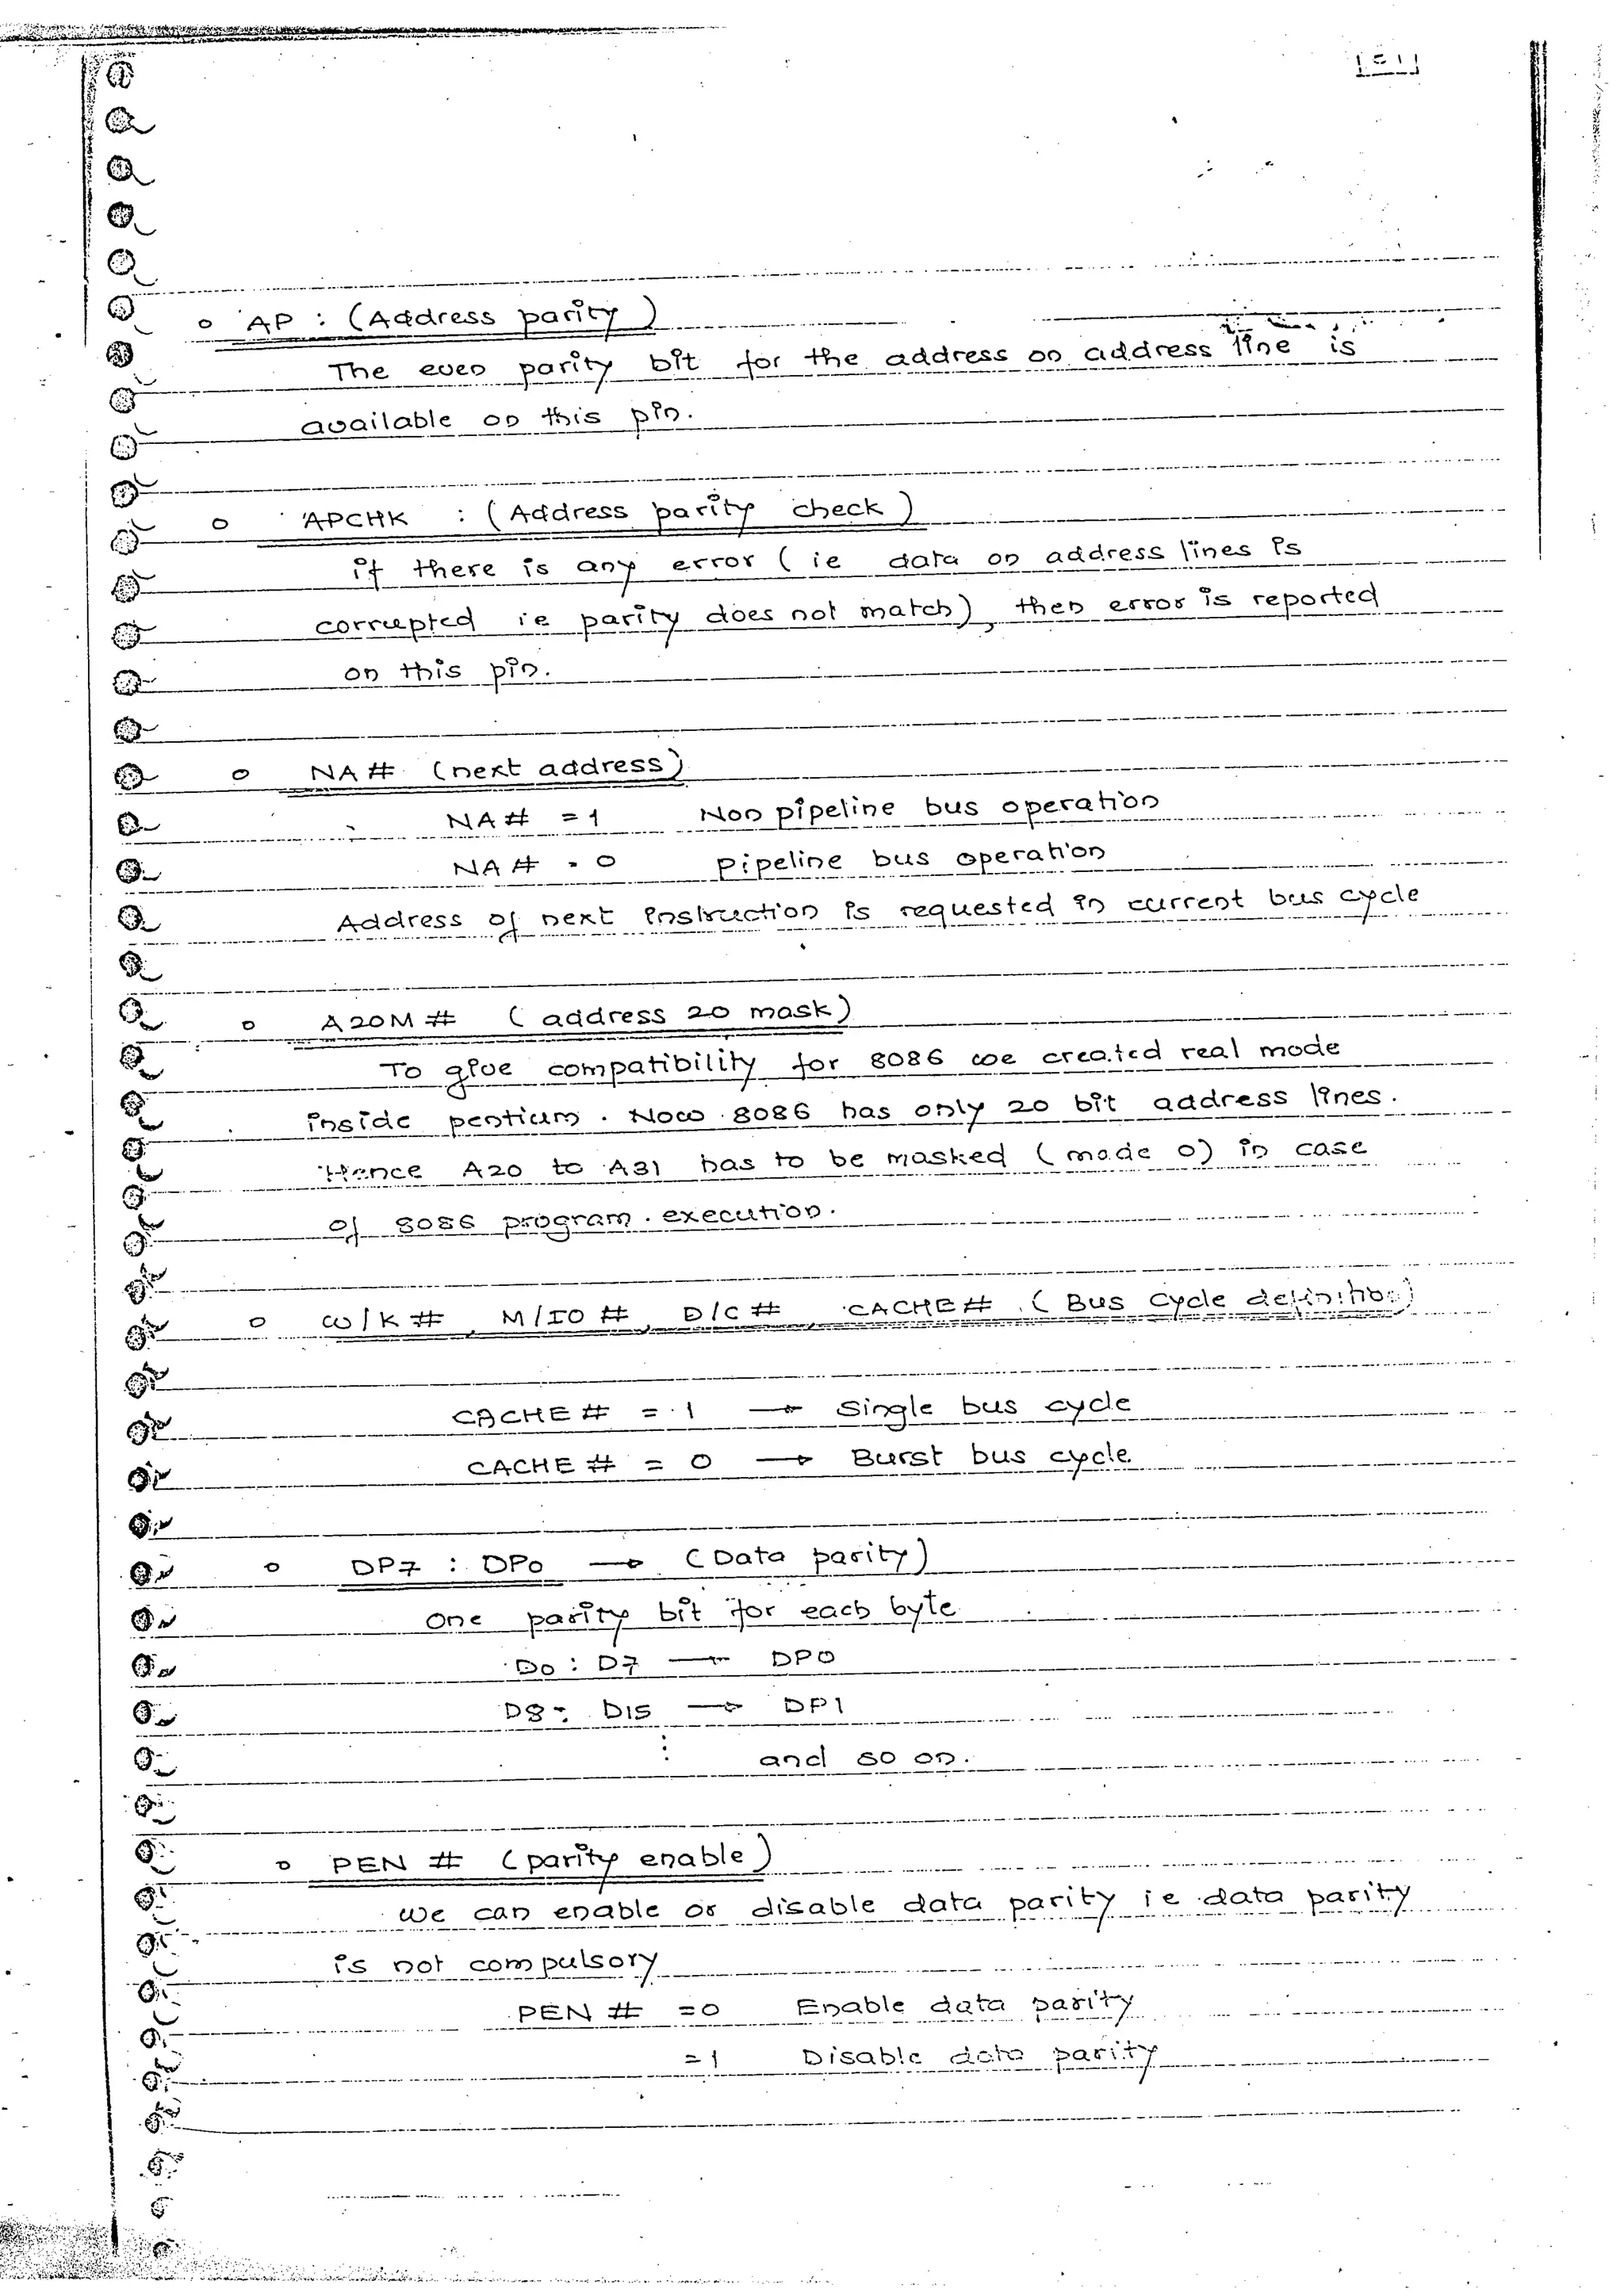 o AP : (Address parity)
The even parity bit for the address on address line is
available on this pin.
o APCHK : (Address parity check)
if there is any error (ie data on address lines is
corrupted ie parity does not match), then error is reported
on this pin.
o NA# (next address)
NA# = 1 Non pipeline bus operation
NA# = 0 pipeline bus operation
Address of next instruction is requested in current bus cycle
o A20M# (address 20 mask)
To give compatibility for 8086 we created real mode
inside pentium. Now 8086 has only 20 bit address lines.
Hence A20 to A31 has to be masked (made 0) in case
of 8086 program execution.
o W/R#, M/IO#, D/C#, CACHE# (Bus cycle definition)
CACHE# = 1 → Single bus cycle
CACHE# = 0 → Burst bus cycle
o DP7 : DP0 → (Data parity)
one parity bit for each byte
D0 : D7 → DP0
D8 : D15 → DP1
: and so on.
o PEN # (parity enable)
we can enable or disable data parity ie data parity
is not compulsory
PEN # = 0 Enable data parity
= 1 Disable data parity